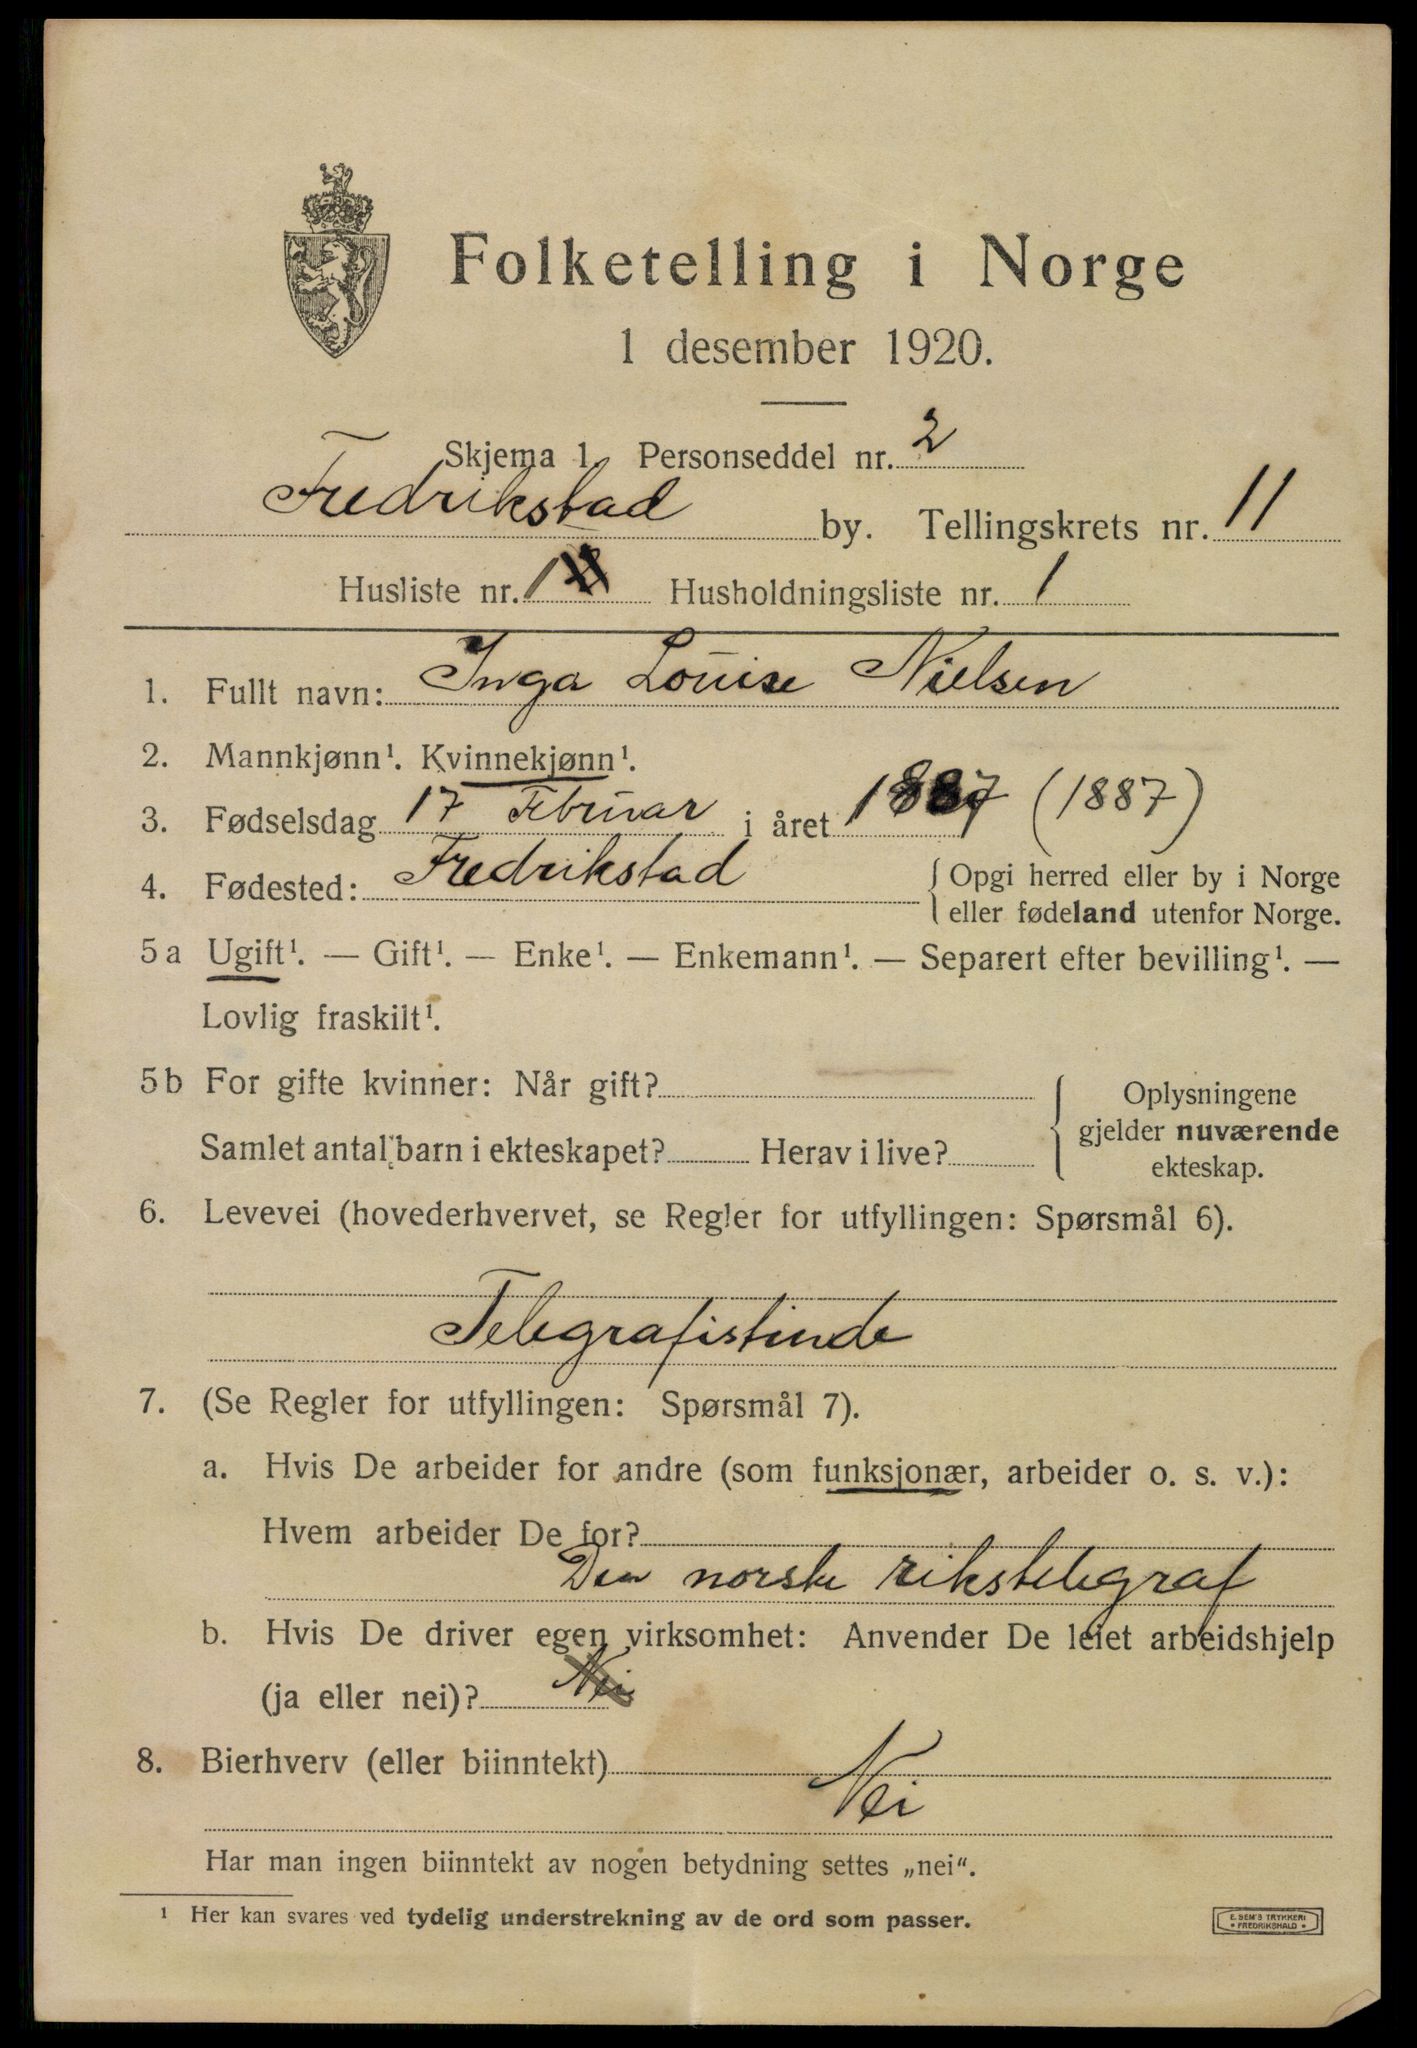 Folketelling i Norge
1 desember 1920.
Skjema 1. Personseddel nr. 2
Fredrikstad by. Tellingskrets nr. 11
Husliste nr. 1 Husholdningsliste nr. 1
1. Fullt navn: Inga Louise Nielsen
2. Mannkjønn¹. Kvinnekjønn¹.
3. Fødselsdag 17 Februar i året 1887 (1887)
4. Fødested: Fredrikstad { Opgi herred eller by i Norge
eller fødeland utenfor Norge.
5a Ugift¹. — Gift¹. — Enke¹. — Enkemann¹. — Separert efter bevilling¹. —
Lovlig fraskilt¹.
5b For gifte kvinner: Når gift?
Samlet antal barn i ekteskapet? Herav i live?
{ Oplysningene
gjelder nuværende
ekteskap.
6. Levevei (hovederhvervet, se Regler for utfyllingen: Spørsmål 6).
Telegrafistinde
7. (Se Regler for utfyllingen: Spørsmål 7).
a. Hvis De arbeider for andre (som funksjonær, arbeider o. s. v.):
Hvem arbeider De for?
Den norske rikstelegraf
b. Hvis De driver egen virksomhet: Anvender De leiet arbeidshjelp
(ja eller nei)? Nei
8. Bierhverv (eller biinntekt)
Nei
Har man ingen biinntekt av nogen betydning settes „nei“.
¹ Her kan svares ved tydelig understrekning av de ord som passer.
E. SEM'S TRYKKERI
• FREDRIKSHALD •